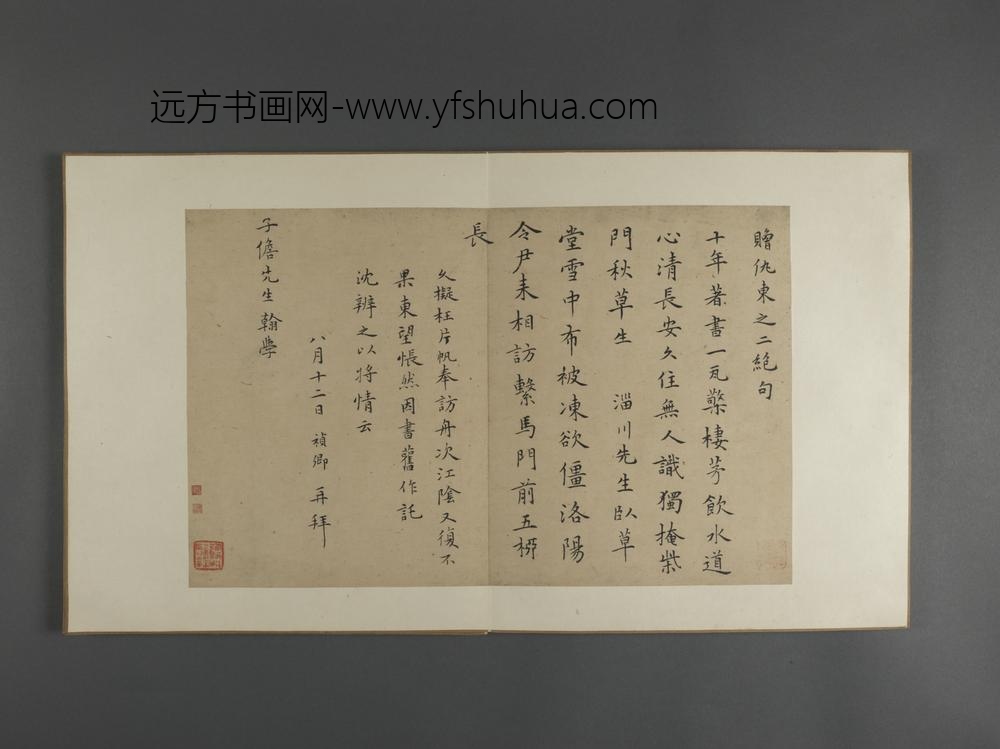 远方书画网-www.yfshuhua.com
贈仇東之二絶句
十年著書一瓦檠棲芳飲水道
心清長安久住無人識獨掩柴
門秋草生 淄川先生臥草
堂雪中布被凍欲僵洛陽
令尹来相訪繫馬門前五栁
長
久擬枉片帆奉訪舟次江陰又復不
果東望悵然因書舊作託
沈辨之以將情云
八月十二日 禎卿 再拜
子儋先生翰學